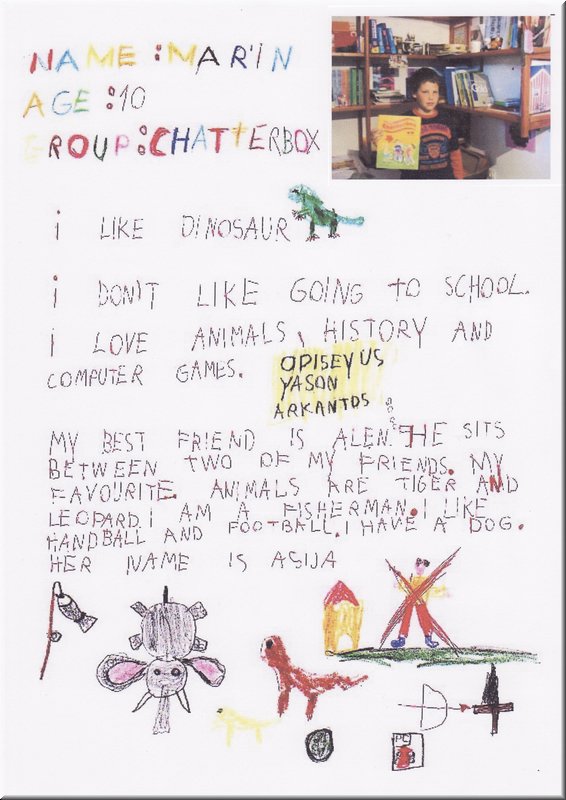 NAME : MARIN
AGE : 10
GROUP : CHATTERBOX
i LIKE DINOSAUR
i DON'T LIKE GOING TO SCHOOL.
i LOVE ANIMALS, HISTORY AND
COMPUTER GAMES.
OPISEYUS
YASON
ARKANTOS
MY BEST FRIEND IS ALEN. HE SITS
BETWEEN TWO OF MY FRIENDS. MY
FAVOURITE. ANIMALS ARE TIGER AND
LEOPARD. I AM A FISHERMAN. I LIKE
HANDBALL AND FOOTBALL. I HAVE A DOG.
HER NAME IS ASIJA